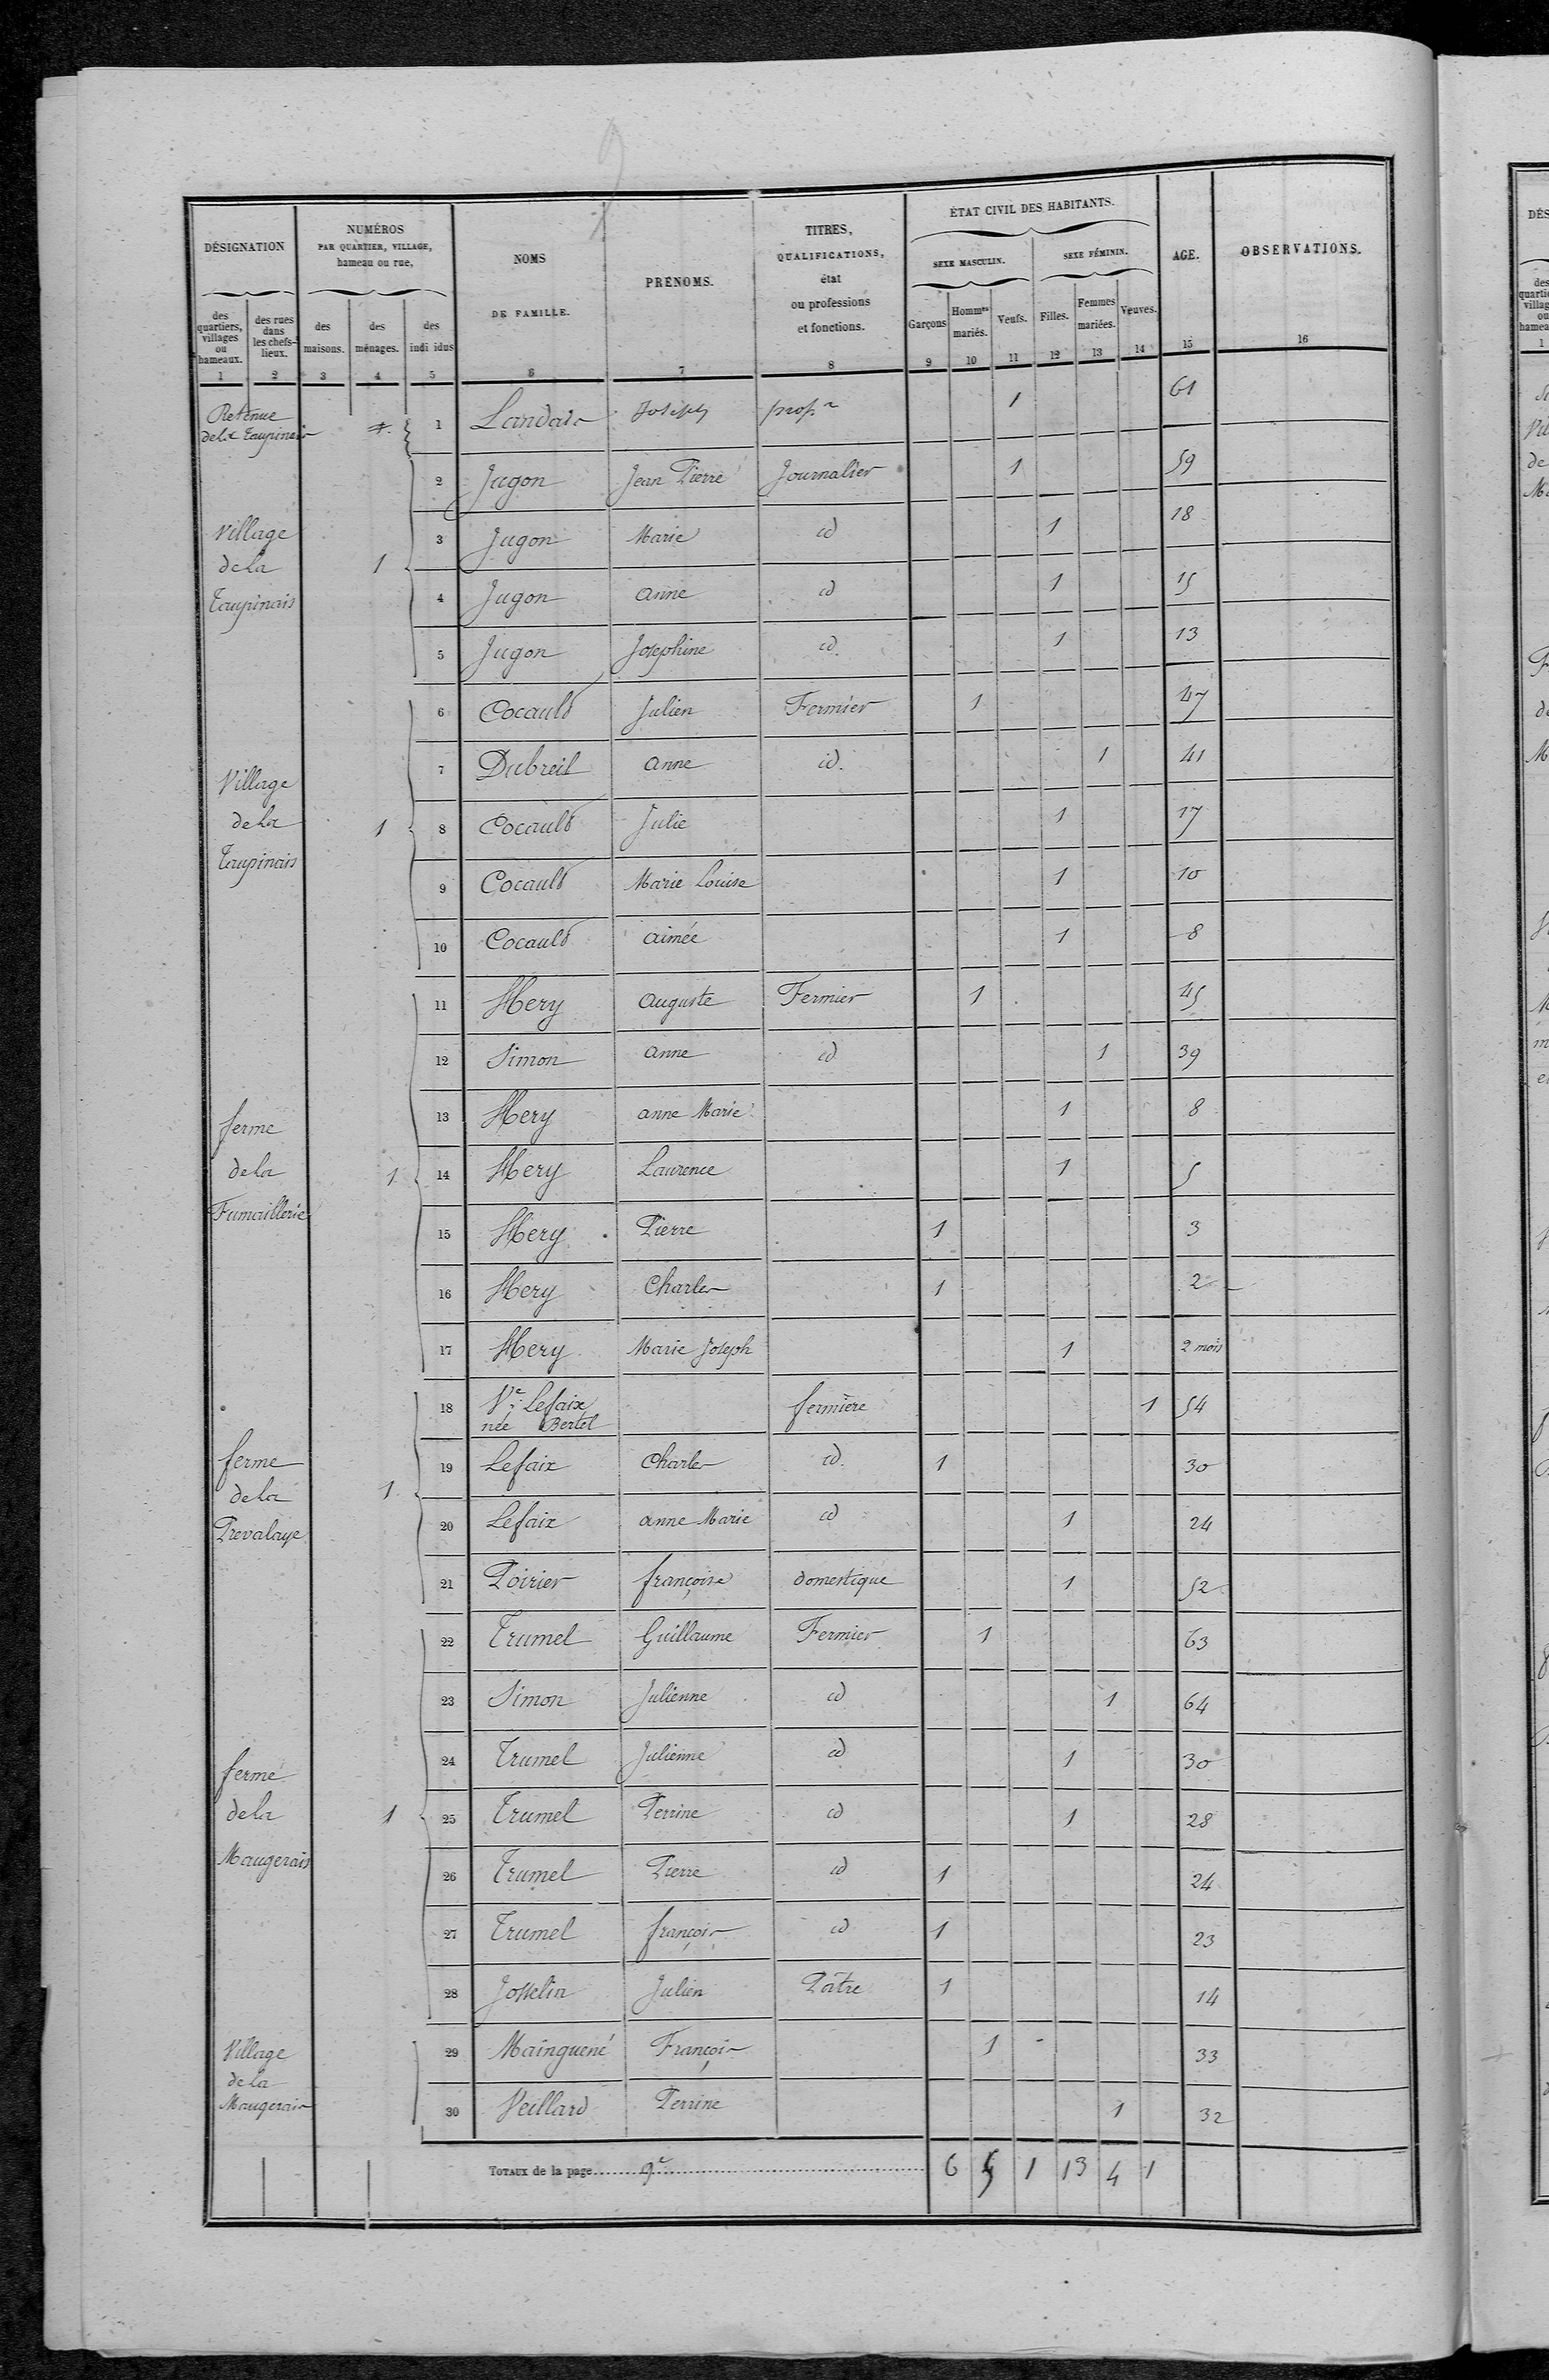 9
DÉSIGNATION
NUMÉROS
PAR QUARTIER, VILLAGE,
hameau ou rue,
NOMS
DE FAMILLE.
PRÉNOMS.
TITRES,
QUALIFICATIONS,
état
ou professions
et fonctions.
ÉTAT CIVIL DES HABITANTS.
SEXE MASCULIN.
SEXE FÉMININ.
AGE.
OBSERVATIONS.
des quartiers, villages ou hameaux.
des rues dans les chefs-lieux.
des maisons.
des ménages.
des indi idus
Garçons
Hommes mariés.
Veufs.
Filles.
Femmes mariées.
Veuves.
1 2 3 4 5 6 7 8 9 10 11 12 13 14 15 16
Retenue
de la Taupinais
1 Landais Joseph propre 1 61
2 Jugon Jean Pierre Journalier 1 59
Village
de la
Taupinais
1
3 Jugon Marie id 1 18
4 Jugon anne id 1 15
5 Jugon Josephine id. 1 13
6 Cocault Julien Fermier 1 47
7 Dubreil anne id. 1 41
Village
de la
Taupinais
1
8 Cocault Julie 1 17
9 Cocault Marie Louise 1 10
10 Cocault aimée 1 8
11 Hery auguste Fermier 1 45
12 Simon anne id 1 39
13 Hery anne Marie 1 8
ferme
de la
Fumaillerie
1
14 Hery Laurence 1 5
15 Hery Pierre 1 3
16 Hery Charles 1 2
17 Hery Marie Joseph 1 2 mois
18 Ve Lefaix
née Bertel fermière 1 54
ferme
de la
Prevalaye
1
19 Lefaix Charles id. 1 30
20 Lefaix anne Marie id 1 24
21 Poirier françoise domestique 1 52
22 Trumel Guillaume Fermier 1 63
23 Simon Julienne id 1 64
24 Trumel Julienne id 1 30
ferme
de la
Maugerais
1
25 Trumel Perrine id 1 28
26 Trumel Pierre id 1 24
27 Trumel françois id 1 23
28 Josselin Julien Pâtre 1 14
Village
de la
Maugerais
29 Mainguené François 1 33
30 Veillard Perrine 1 32
TOTAUX de la page 9e 6 5 1 13 4 1